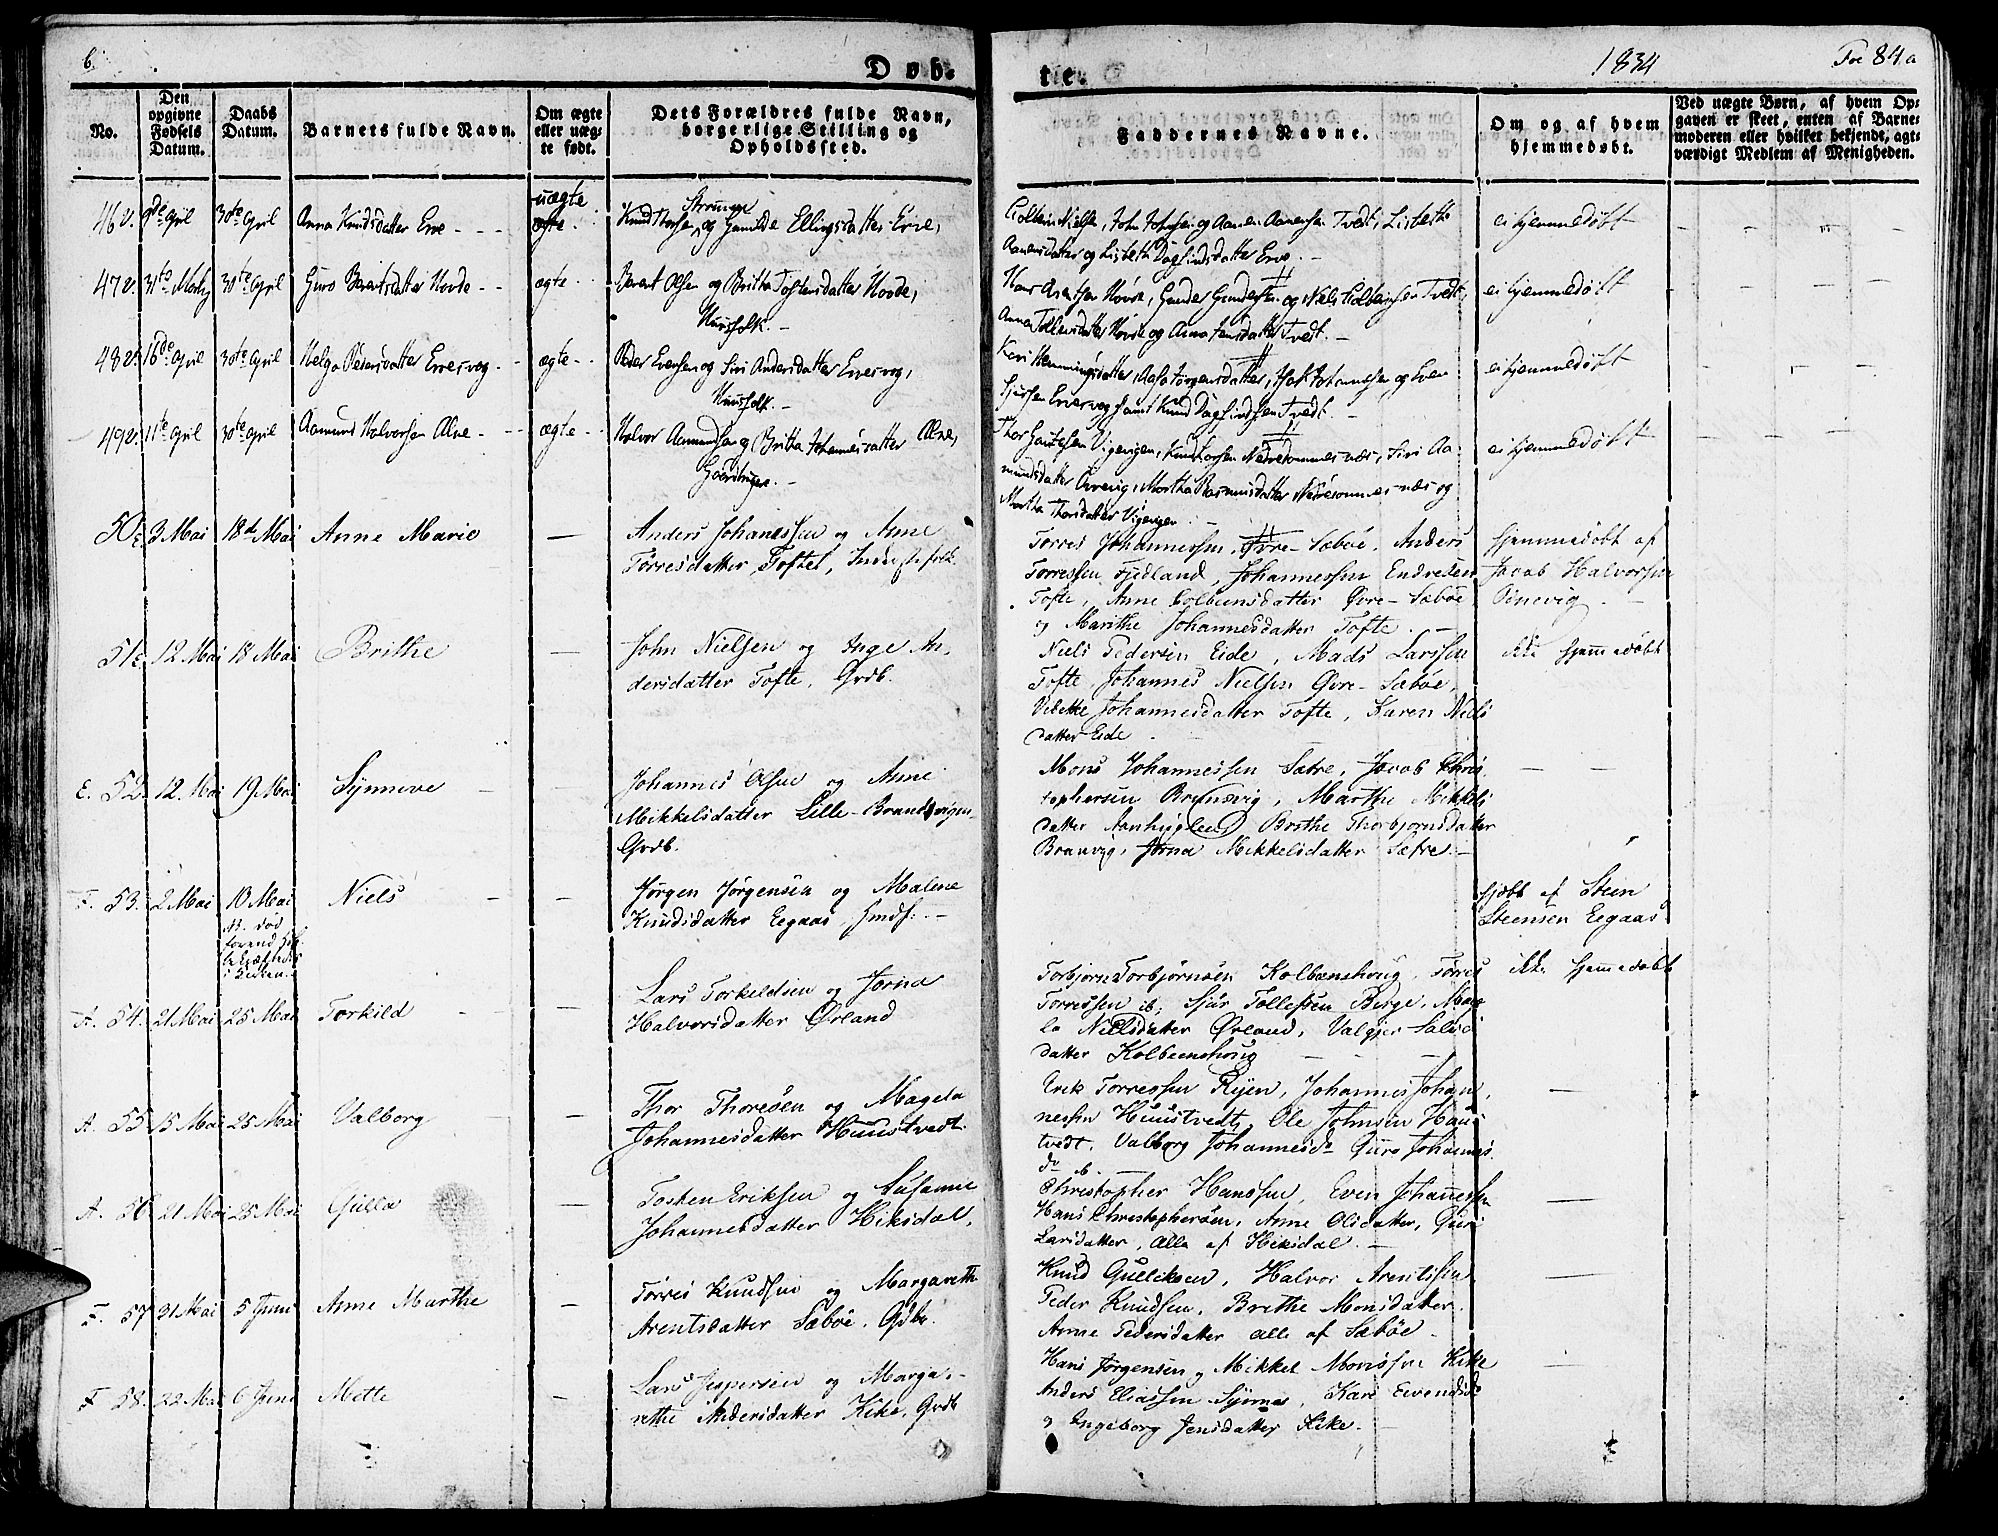 6.
Døb-
te.
1834
Foe 84a
No.
Den opgivne Fødsels Datum.
Daabs Datum.
Barnets fulde Navn.
Om ægte eller uægte født.
Dets Forældres fulde Navn, borgerlige Stilling og Opholdssted.
Faddernes Navne.
Om og af hvem hjemmedøbt.
Ved uægte Børn, af hvem Opgaven er skeet, enten af Barnemoderen eller hvilket bekjendt, agtværdigt Medlem af Menigheden.
46 30te April Anna Knudsdatter Erve - uægte
Knud Thorsen Strømme og Gunilde Ellingsdatter Erve,
John Johnsen og Aamen Aanensen Tvedt, Lisbeth
Aanensdatter og Lisbeth Dagfindsdatter Erve. -
ei hjemmedøbt
47 31te Marty 30te April Guro Berentsdatter Hovde - ægte
Berent Olsen og Britha Tostensdatter Hovde,
Huusfolk. -
Gunder Gundersen og Niels Colbeinsen Tvedt,
Anna Tollevsdatter Hovde og Anna Jensdatter Tvedt. -
ei hjemmedøbt
48 16de April 30te April Helga Pedersdatter Erversvog - ægte
Peder Evensen og Siri Andersdatter Erversvog,
Huusfolk. -
Kari Henningsdatter, Aasa Jørgensdatter, Isak Johannesen og Even
Erversvog samt Knud Dagfindsen Tvedt. -
ei hjemmedøbt
49 11te April 30te April Aamund Halvorsen Alne - ægte
Halvor Aamundsen og Britha Johannesdatter Alne,
Thor Gautesen Vigevigen, Knud Larsen Nedresommernæs, Siri Aa-
mundsdatter, Martha Rasmusdatter Nedresommernæs og
Martha Thorsdatter Vigevigen -
ei hjemmedøbt
50 3 Mai 18de Mai Anne Marie —
Anders Johanessen og Anne
Torresdatter, Toftet, Inderstefolk.
Torres Johannessen, Øvre-Sæbøe, Anders
Torressen Fjedland, Johannessen Endresen
Tofte, Anne Colbensdatter Øvre-Sæbøe
og Marithe Johannesdatter Tofte. -
hjemmedøbt af
Jacob Halvorsen
Pinevig
51 12 Mai 18 Mai Brithe —
John Nielsen og Inge An-
dersdatter Tofte, Grdb.
Niels Pedersen Eide, Mads Larssen
Tofte, Johannes Nielsen Øvre-Sæbøe,
Johannesdatter Tofte, Karen Niels
datter Eide -
ikke hjemmedøbt
E. 52. 12. Mai 19 Mai Synneve -
Johannes Olsen og Anne
Mikkelsdatter Lille-Brandvigen
Grdb.
Mons Johannessen Sætre, Jacob Chris
tophersen Brandvig, Marthe Mikkels
datter Aanhuglen, Brithe Thorbjørnsdatter
Branvig, Jorna Mikkelsdatter Sætre. -
— —
F. 53. 2 Mai 10 Mai Niels - -
NB. død
forend
i Kirken.
Jørgen Jørgensen og Malene
Knudsdatter Eegaas, Indf: -
hjdbt af Steen
Steensen Eegaas
A. 54. 21 Mai 25 Mai Torkild - —
Lars Torkeldsen og Jorna
Halvorsdatter Ørland
Torbjørn Torbjørnsen Kolbenshoug, Torres
Torressen ib; Sjur Tollefsen Birge, Mag
la Nielsdatter Ørland, Valgjer Salve
datter Kolbeenshoug — — —
ikke hjemmedøbt
A. 55 15 Mai 25 Mai Valborg - —
Thor Thoresen og Magela
Johannesdatter Huustvedt.
Erik Torressen Rijen, Johannes Johan
nessen Huustvedt, Ole Johnsen Huus
tvedt, Valborg Johannesd. Guro Johannes
dr ib.
—
A. 56 21 Mai 25 Mai Gulla —
Tosten Eriksen og Susanne
Johannesdatter Hiksdal.
Christopher Hanssen, Even Johanessen
Hans Christophersen, Anne Olsdatter, Guri
Larsdatter, Alle af Hiksdal. -
—
F. 57 31 Mai 5 Juni Anne Marthe —
Torres Knudsen og Margarethe
Arentsdatter Sæbøe, Gdbr.
Knud Guliksen, Halvor Arentssen
Peder Knudsen, Brethe Monsdatter.
Anne Pedersdatter alle af Sæbøe -
—
F 58. 22 Mai 6 Juni Mette —
Lars Jespersen og Marga-
rethe Andersdatter Kike, Grdb
Hans Jørgensen, Mikkel Monssen Kike
Anders Eliassen Synnes, Kari Evendsd
og Ingeborg Jensdatter Kike. -
—